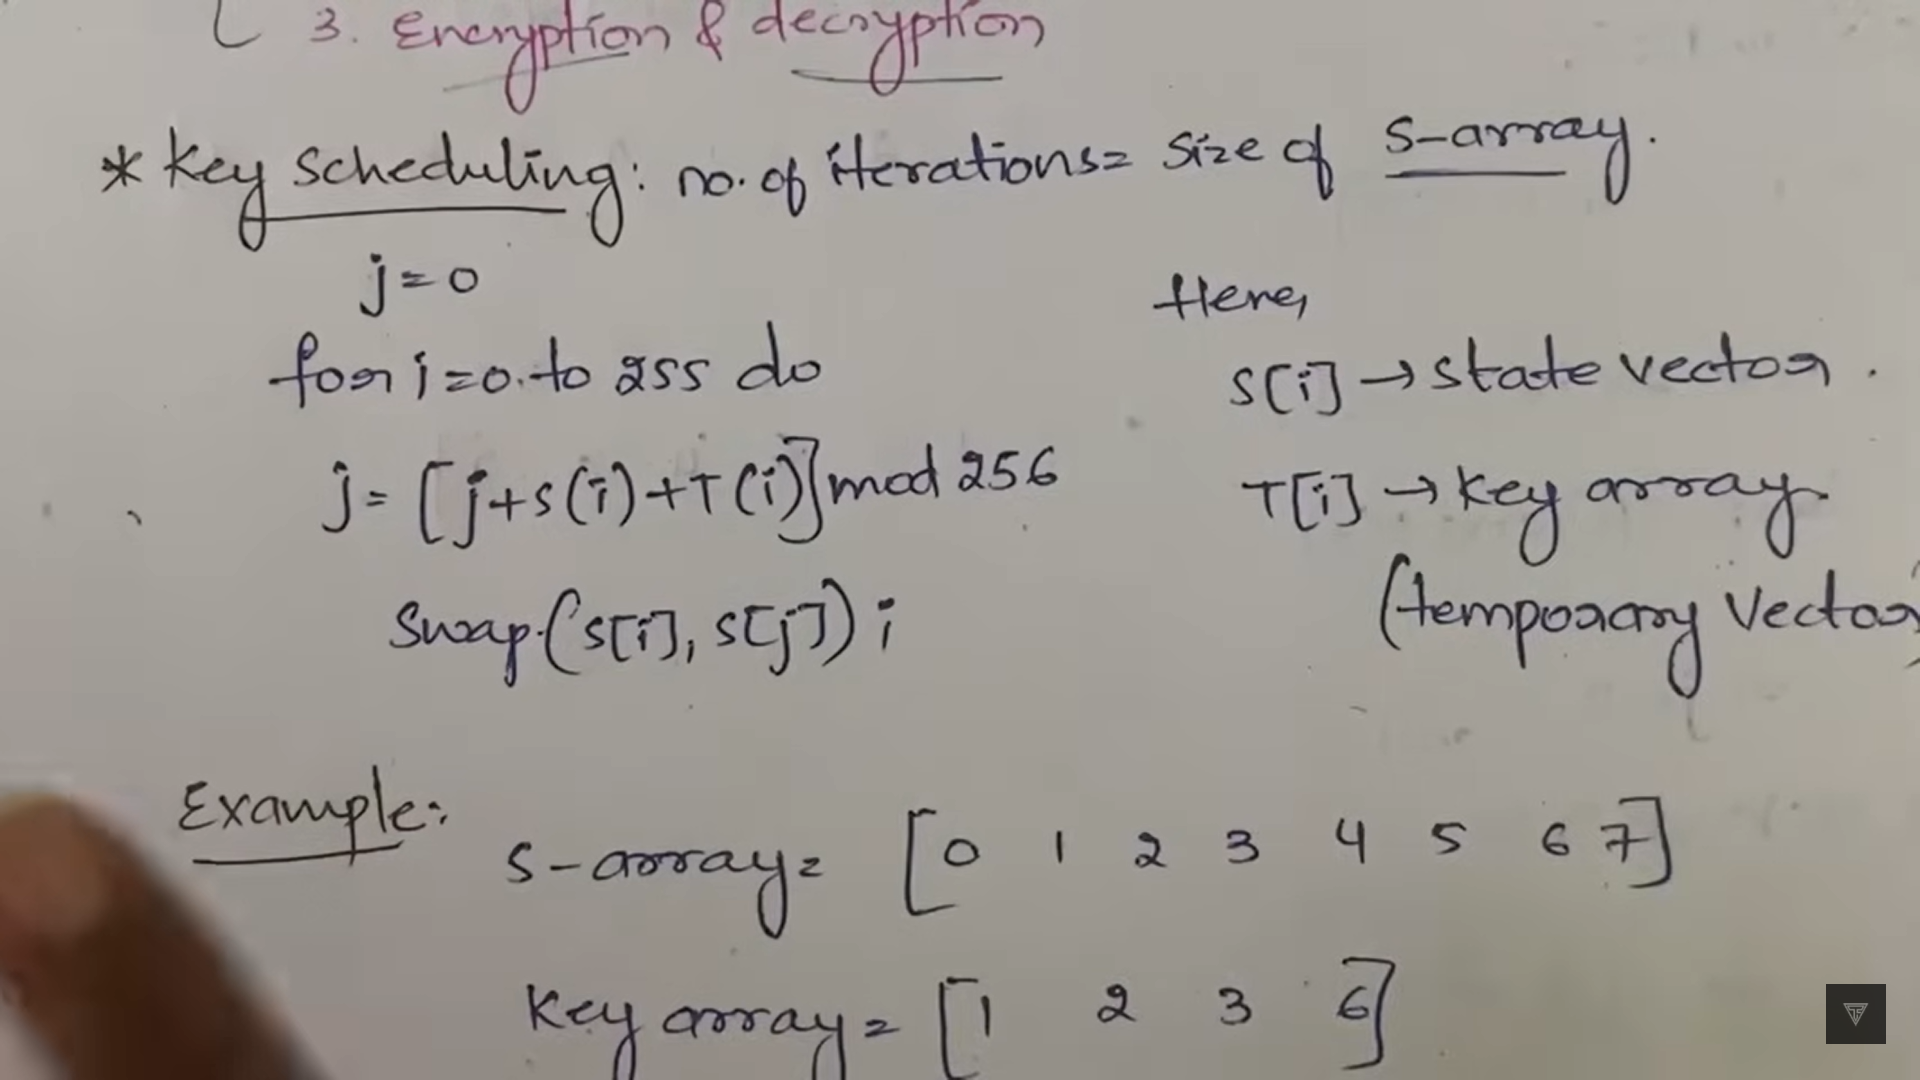 3. Encryption & decryption
* Key scheduling: no. of iterations= size of s-array.
j=0
for i=0 to 255 do
j= [j+s(i)+T(i)] mod 256
Swap(s[i], s[j]);
Here,
s[i] → state vector.
T[i] → key array
(temporary vector)
Example:
s-array= [0 1 2 3 4 5 6 7]
Key array= [1 2 3 6]